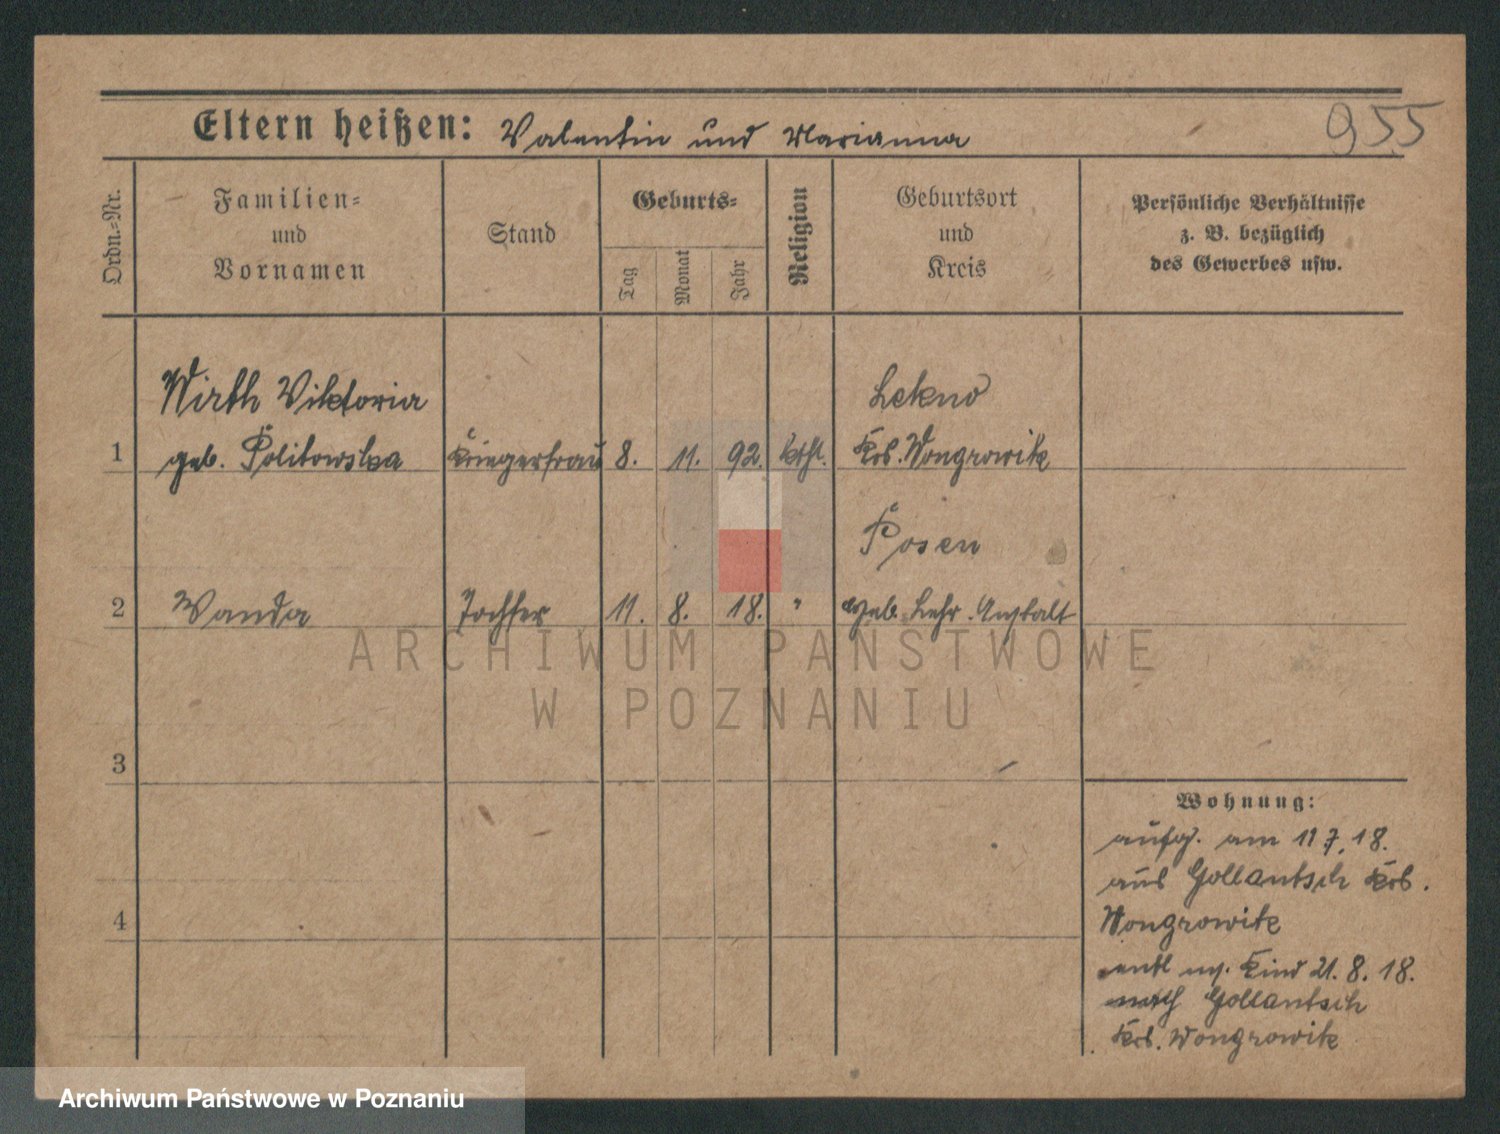 Eltern heißen: Valentin und Marianna
955
Ordn.-Nr.
Familien-
und
Vornamen
Stand
Geburts-
Tag
Monat
Jahr
Religion
Geburtsort
und
Kreis
Persönliche Verhältnisse
z. B. bezüglich
des Gewerbes usw.
Wirth Viktoria
Lekno
1 geb. Politowska Kriegerfrau 8. 11. 92. kthl. Krs. Wongrowitz
Posen
2 Wanda Tochter 11. 8. 18. " Heb. Lehr. Anstalt
ARCHIWUM PAŃSTWOWE
W POZNANIU
3
4
Wohnung:
aufg. am 11 7. 18.
aus Gollantsch Krs.
Wongrowitz
entl m. Kind 21. 8. 18.
nach Gollantsch
Krs. Wongrowitz
Archiwum Państwowe w Poznaniu